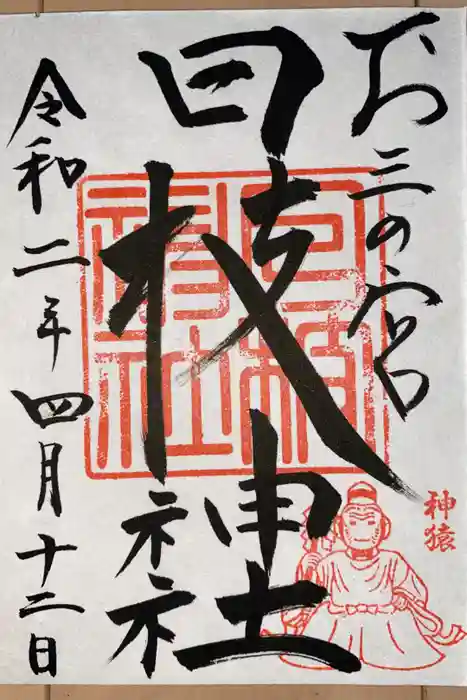 お三の宮
日枝神社
令和二年四月十二日
日枝神社
神猿